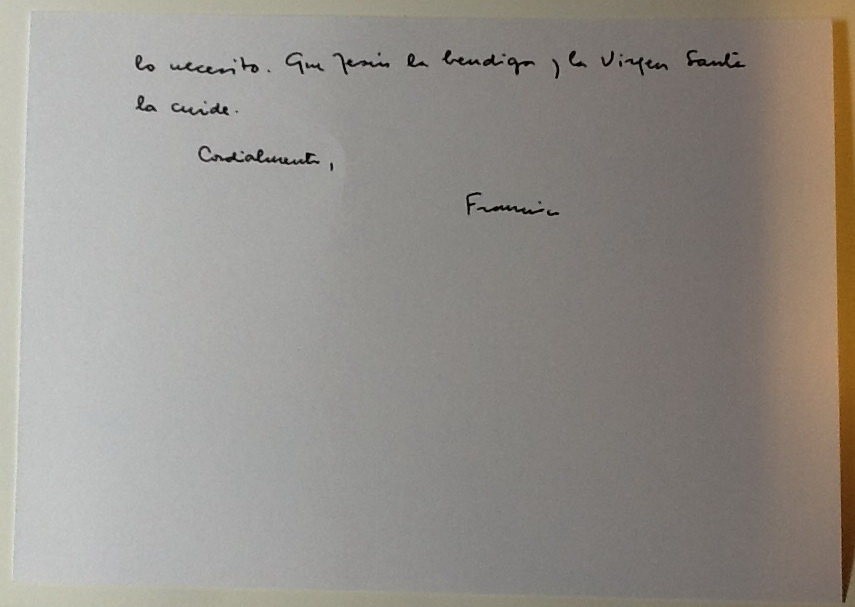 lo necesito. Que Jesús la bendiga y la Virgen Santa
la cuide.
Cordialmente,
Francisco